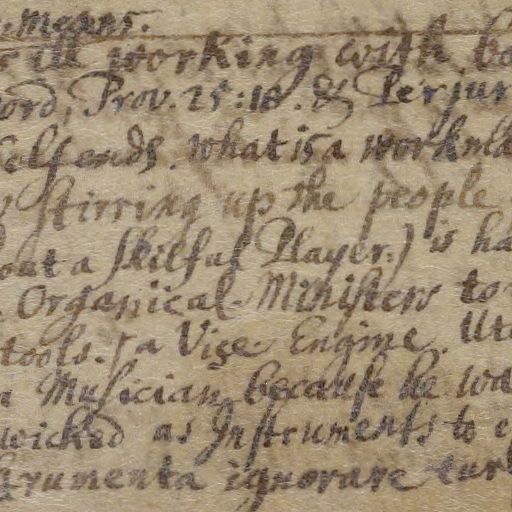 Means.
ill working with
ord, Prov. 25:18. & Perjur
selfends. what is a work
stirring up the people
out a skilful Player:) is ha
Organical Ministers to
tools. a Vize Engine. Ute
a Musician because he wa
wicked as Instruments to
strumenta ignorare turb